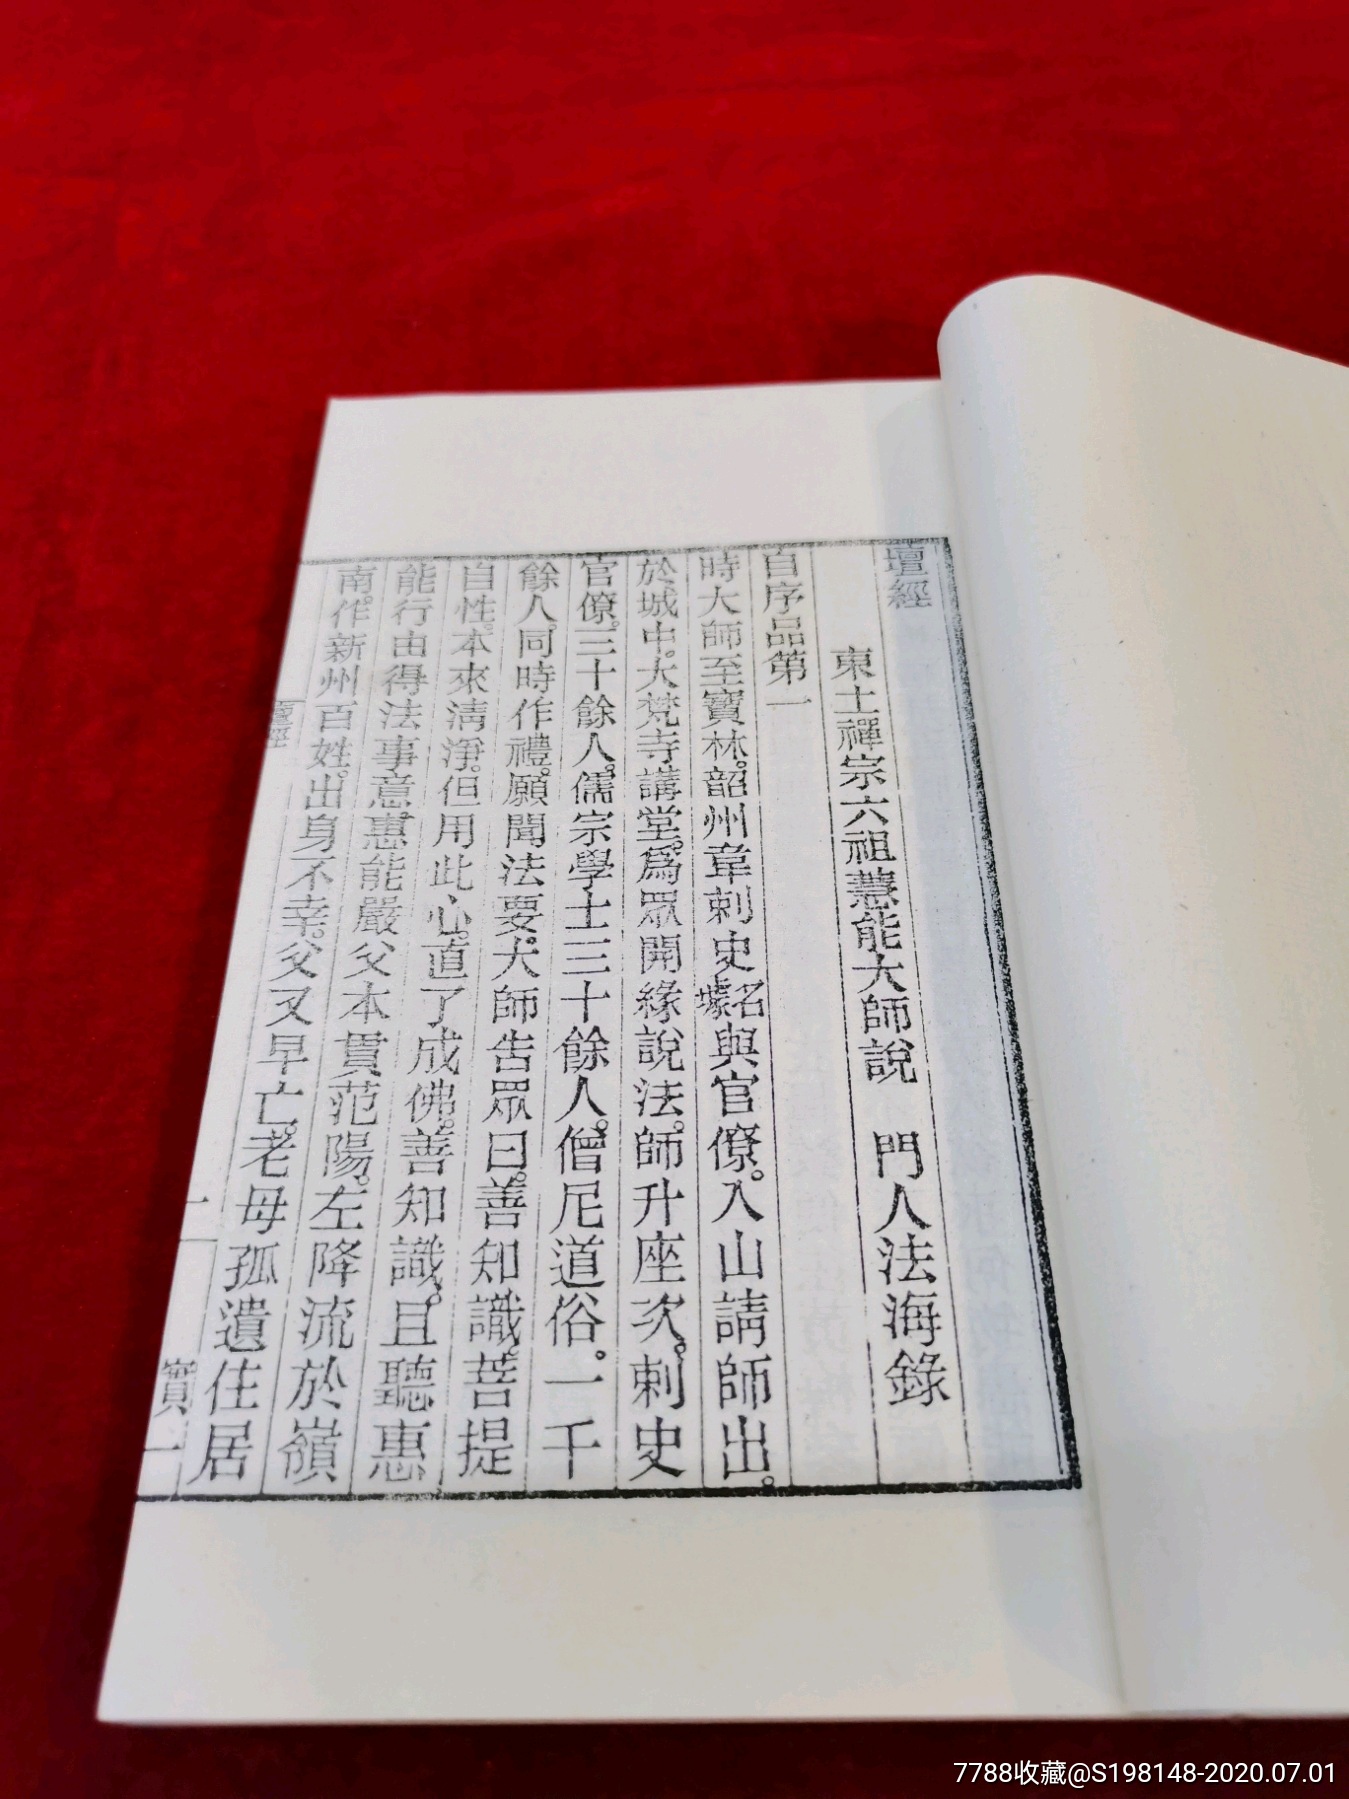 壇經
東土禪宗六祖慧能大師說　門人法海錄
自序品第一
時大師至寶林。韶州韋刺史名璩與官僚。入山請師出。
於城中。大梵寺講堂。爲眾開緣說法。師升座次。刺史
官僚。三十餘人。儒宗學士三十餘人。僧尼道俗。一千
餘人。同時作禮。願聞法要。大師告眾曰。善知識。菩提
自性。本來清淨。但用此心。直了成佛。善知識。且聽惠
能行由得法事意。惠能嚴父本貫范陽。左降流於嶺
南。作新州百姓。出身不幸。父又早亡。老母孤遺住居
壇經
一
實一
7788收藏@S198148-2020.07.01